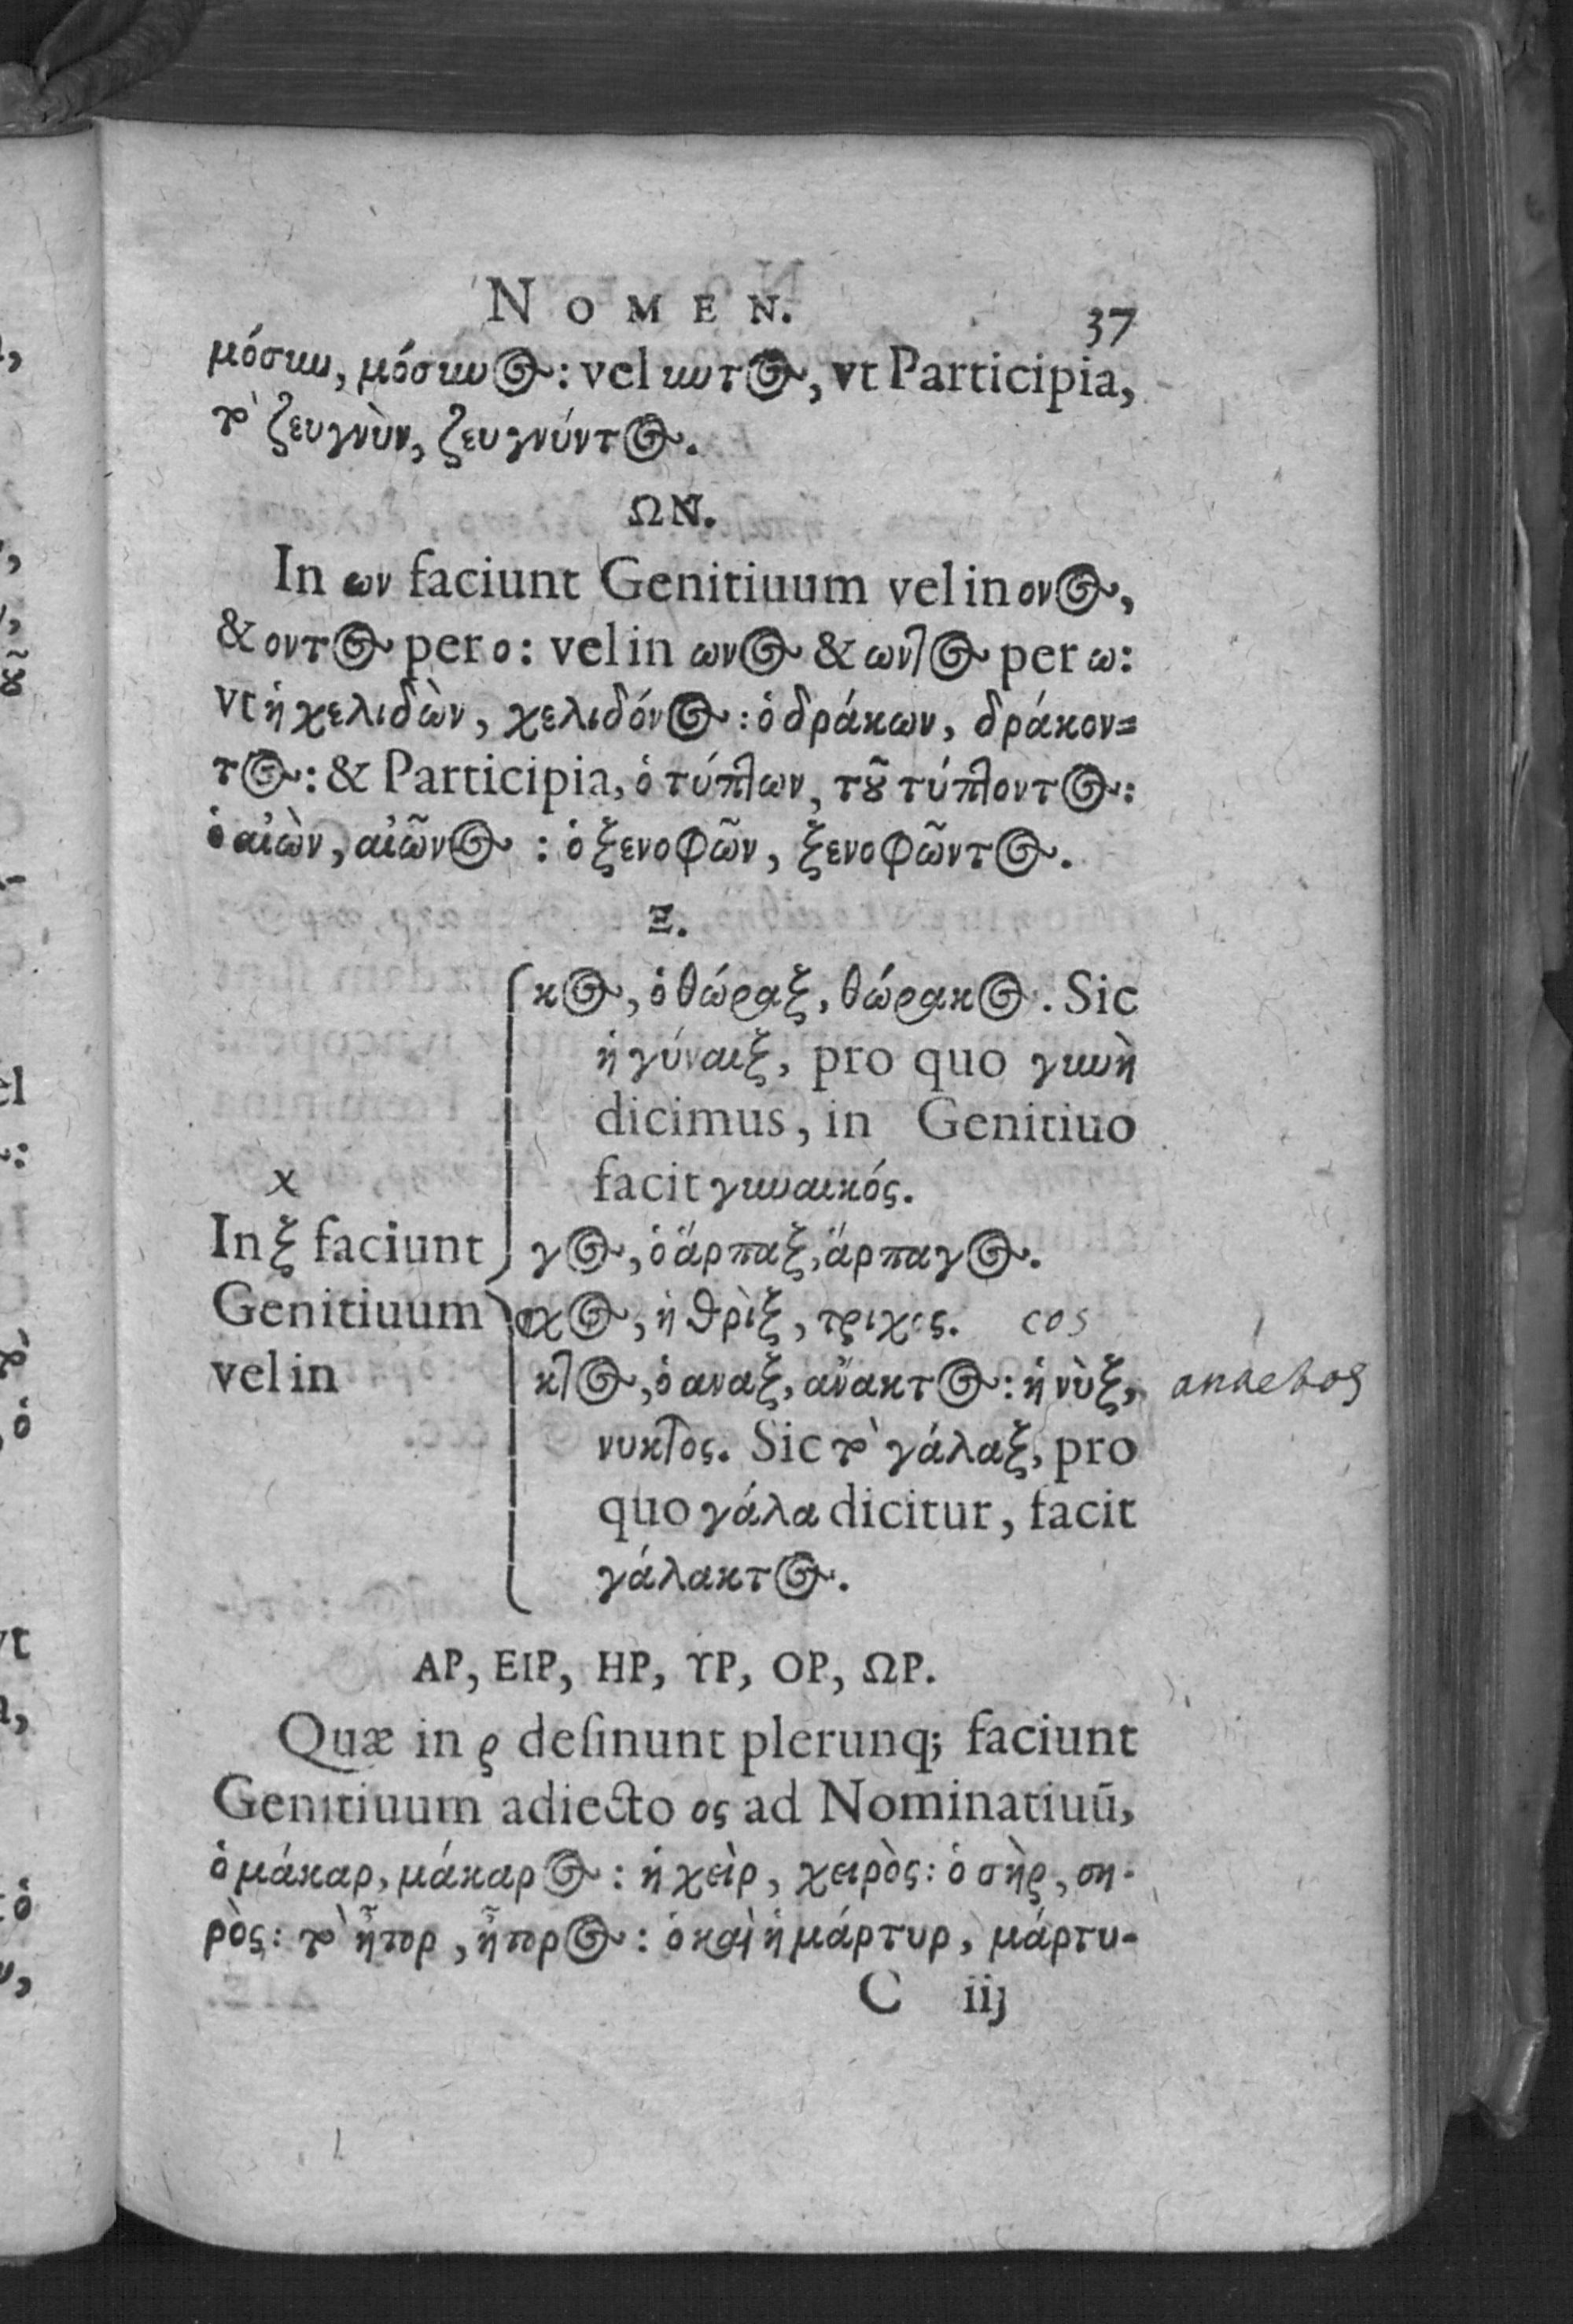 NOMEN. 37
μόσυν, μόσυνος: vel υντος, vt Participia,
τὸ ζευγνὺν, ζευγνύντος.
ΩΝ.
In ων faciunt Genitiuum vel in ονος,
& οντος per ο: vel in ωνος & ωντος per ω:
vt ἡ χελιδὼν, χελιδόνος: ὁ δράκων, δράκον=
τος: & Participia, ὁ τύπτων, τοῦ τύπτοντος:
ὁ αἰὼν, αἰῶνος : ὁ ξενοφῶν, ξενοφῶντος.
Ξ.
κος, ὁ θώραξ, θώρακος. Sic
ἡ γύναιξ, pro quo γυνὴ
dicimus, in Genitiuo
facit γυναικός.
x
In ξ faciunt
Genitiuum
vel in
γος, ὁ ἅρπαξ, ἅρπαγος.
χος, ἡ θρὶξ, τριχος. cos
κτος, ὁ αναξ, ἄνακτος: ἡ νὺξ,
νυκτος. Sic τὸ γάλαξ, pro
quo γάλα dicitur, facit
γάλακτος.
ΑΡ, ΕΙΡ, ΗΡ, ΥΡ, ΟΡ, ΩΡ.
Quæ in ρ desinunt plerunq; faciunt
Genitiuum adiecto ος ad Nominatiuū,
ὁ μάκαρ, μάκαρος: ἡ χεὶρ, χειρὸς: ὁ σὴρ, ση-
ρὸς: τὸ ἦτορ, ἦτορος: ὁ καὶ ἡ μάρτυρ, μάρτυ-
C iij